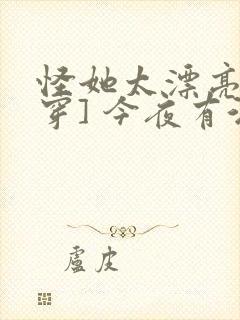 怪她太漂亮
穿]今夜有
盧皮